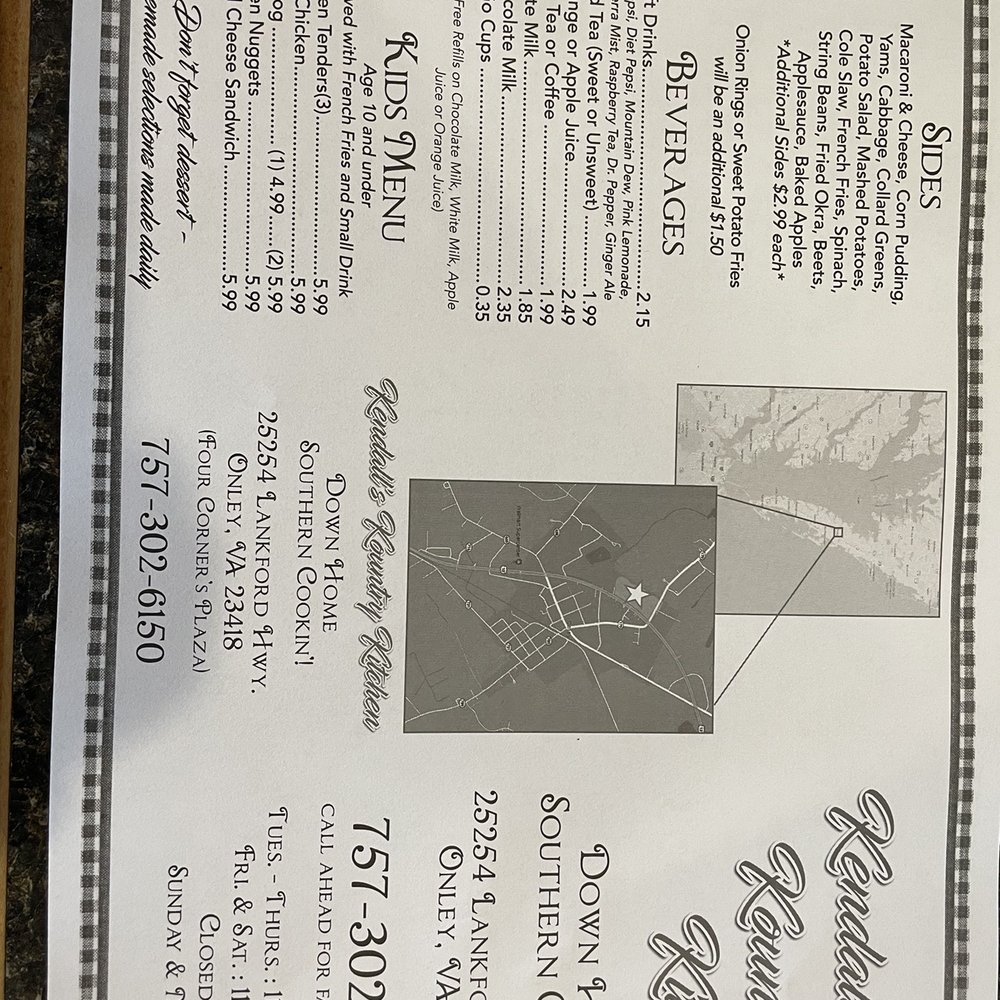 SIDES
Macaroni & Cheese, Corn Pudding,
Yams, Cabbage, Collard Greens,
Potato Salad, Mashed Potatoes,
Cole Slaw, French Fries, Spinach,
String Beans, Fried Okra, Beets,
Applesauce, Baked Apples
*Additional Sides $2.99 each*
Onion Rings or Sweet Potato Fries
will be an additional $1.50
BEVERAGES
t Drinks..........2.15
psi, Diet Pepsi, Mountain Dew, Pink Lemonade,
rra Mist, Raspberry Tea, Dr. Pepper, Ginger Ale
d Tea (Sweet or Unsweet)..........1.99
nge or Apple Juice..........2.49
Tea or Coffee..........1.99
te Milk..........1.85
colate Milk..........2.35
io Cups..........0.35
Free Refills on Chocolate Milk, White Milk, Apple
Juice or Orange Juice)
KIDS MENU
Age 10 and under
ved with French Fries and Small Drink
en Tenders(3)..........5.99
Chicken..........5.99
og..........(1) 4.99.....(2) 5.99
en Nuggets..........5.99
l Cheese Sandwich..........5.99
Don't forget dessert -
emade selections made daily
Kendall's Kountry Kitchen
DOWN HOME
SOUTHERN COOKIN'!
25254 LANKFORD HWY.
ONLEY, VA 23418
(FOUR CORNER'S PLAZA)
757-302-6150
Kendal
Koun
Ki
DOWN H
SOUTHERN C
25254 LANKFO
ONLEY, VA
757-302
CALL AHEAD FOR FA
TUES. - THURS. : 1
FRI. & SAT. : 11
CLOSED
SUNDAY &